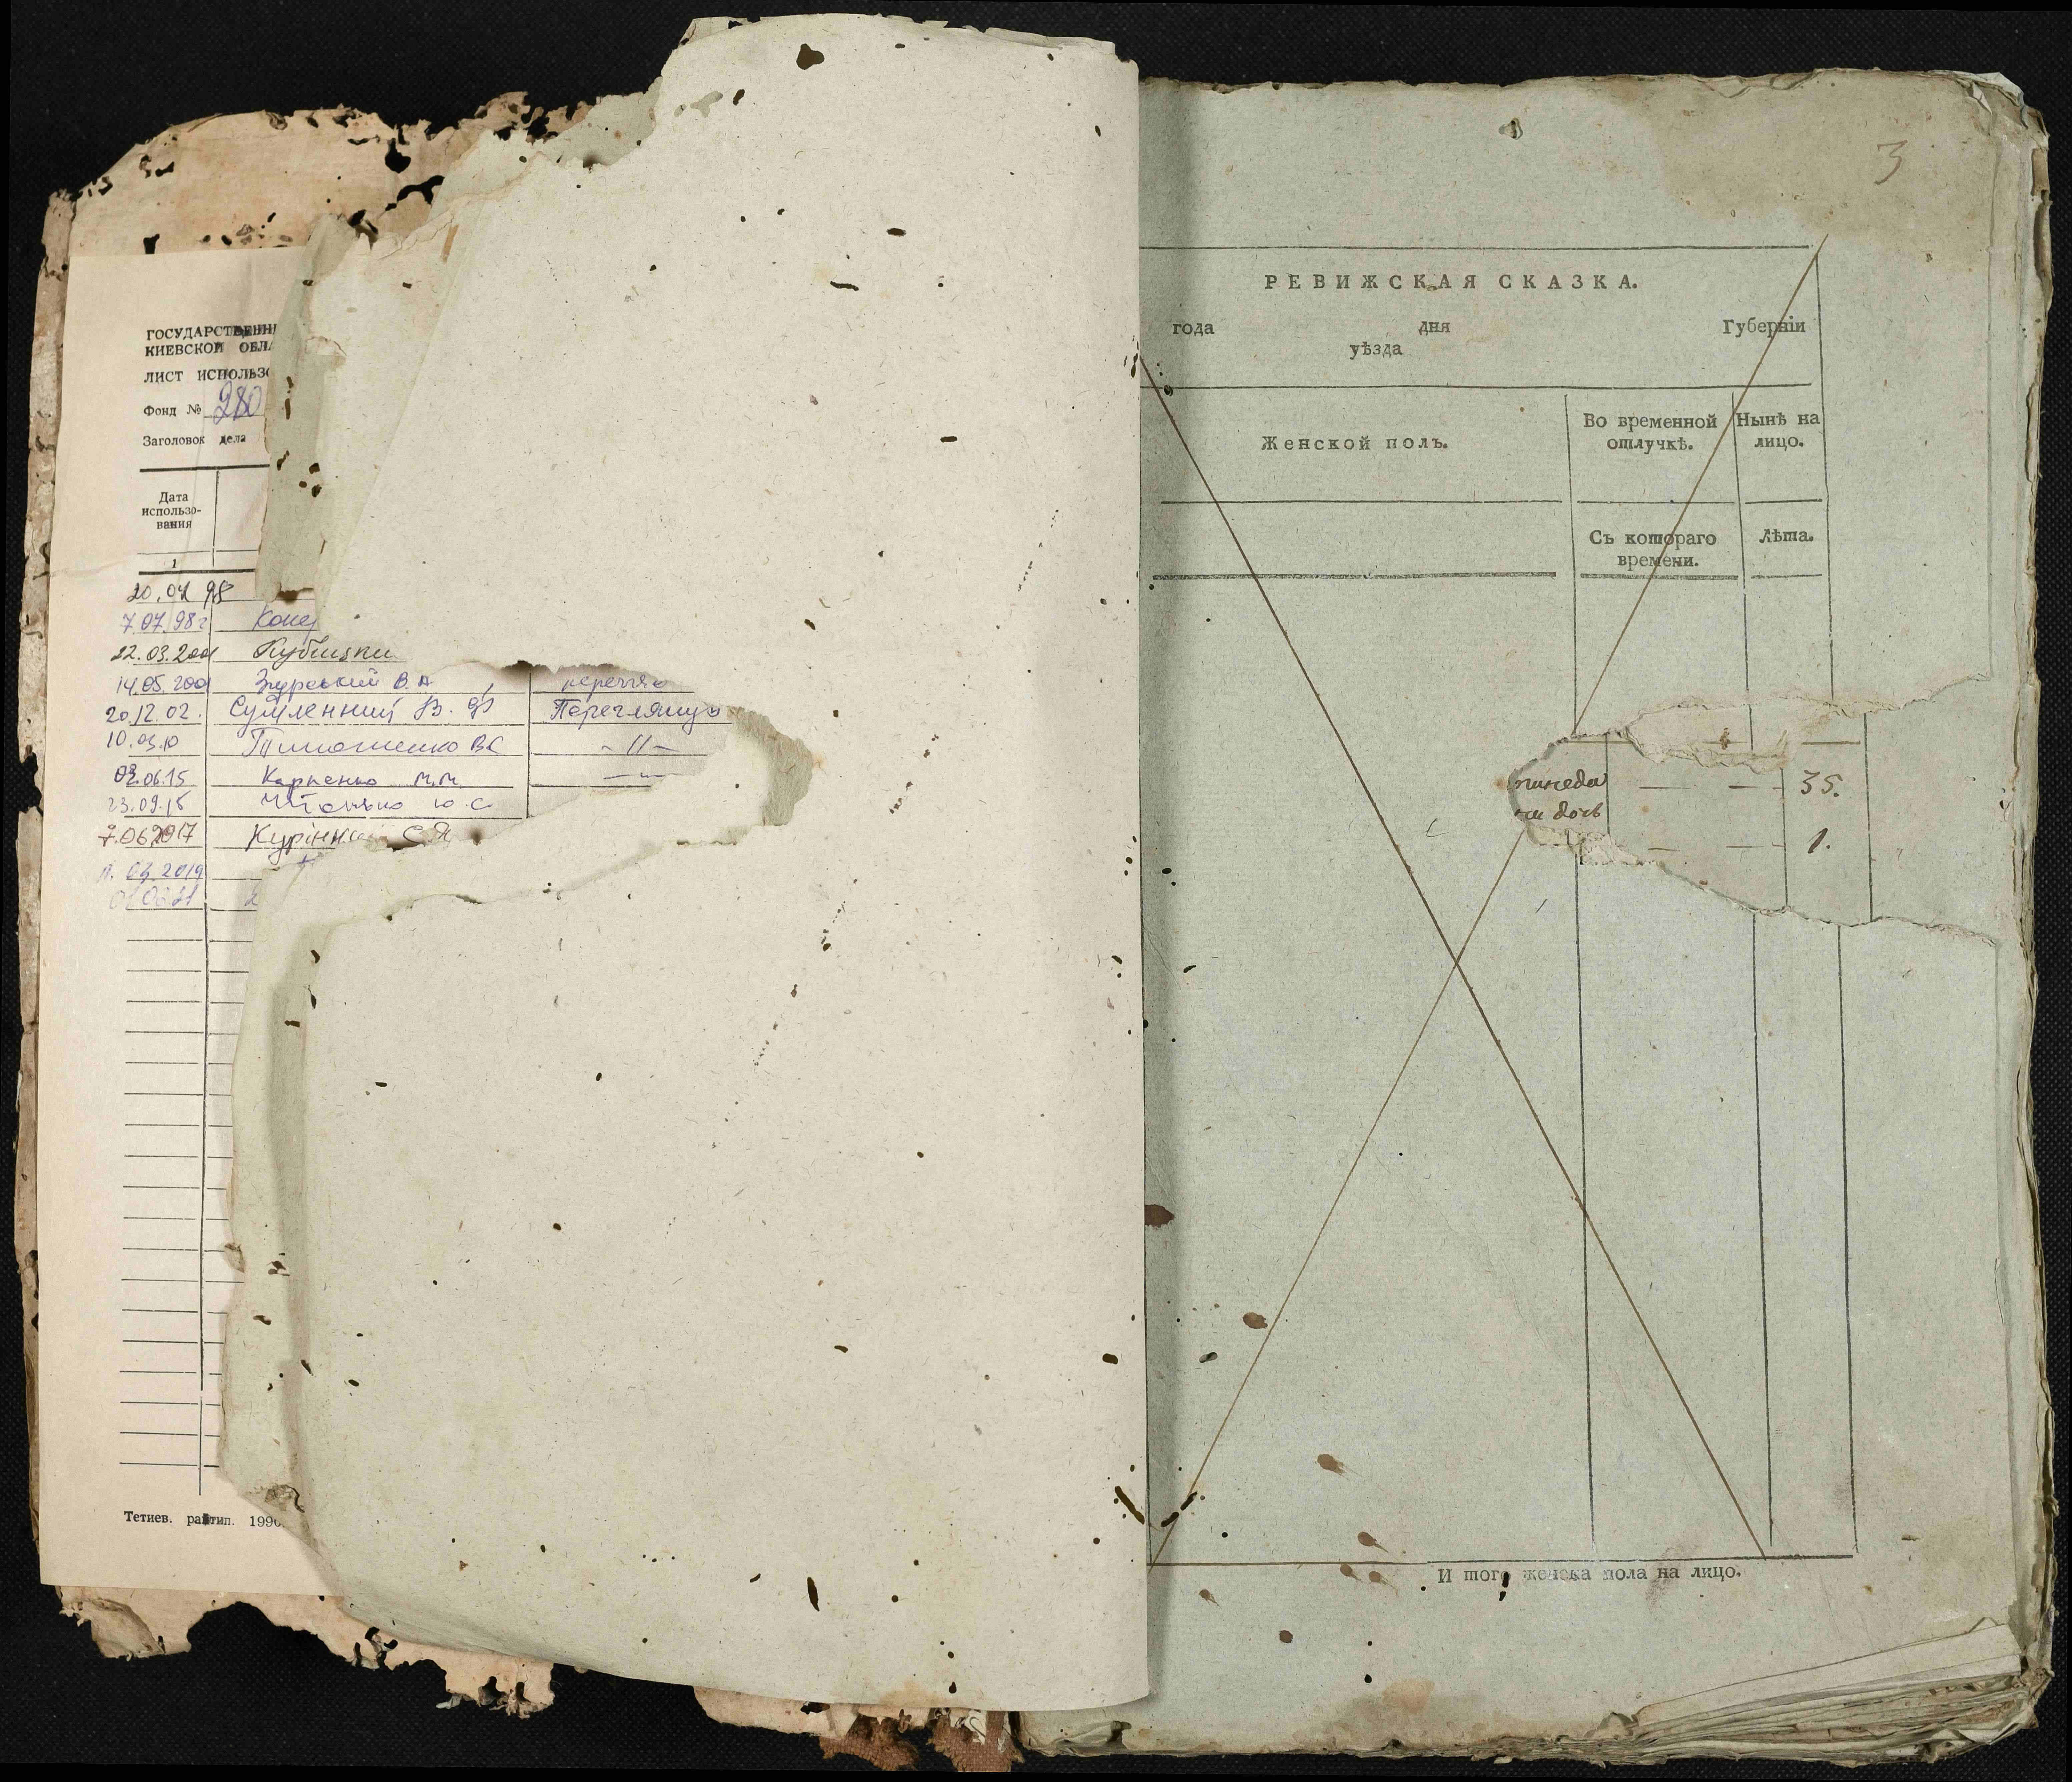 ГОСУДАРСТВЕНН
КИЕВСКОЙ ОБЛА
ЛИСТ ИСПОЛЬЗО
Фонд № 280
Заголовок дела
Дата
использо-
вания
1
20.04 98
7.07.98г
22.03.2001
14.05.2001 В. А
20.12.02. Сумленний В. Переглянув
10.03.10 Тимошенко ВС -||-
02.06.15 Карпенко М.М.
23.09.15 Ю.С.
7.062017 Курінний С Я
11.04.2019
Тетиев. райтип. 1990
3
РЕВИЖСКАЯ СКАЗКА.
года дня Губерніи
уѣзда
Женской полъ.
Во временной
отлучкѣ.
Нынѣ на
лицо.
Съ котораго
времени.
Лѣта.
— — 35.
дочь
— — 1.
И того женска пола на лицо.